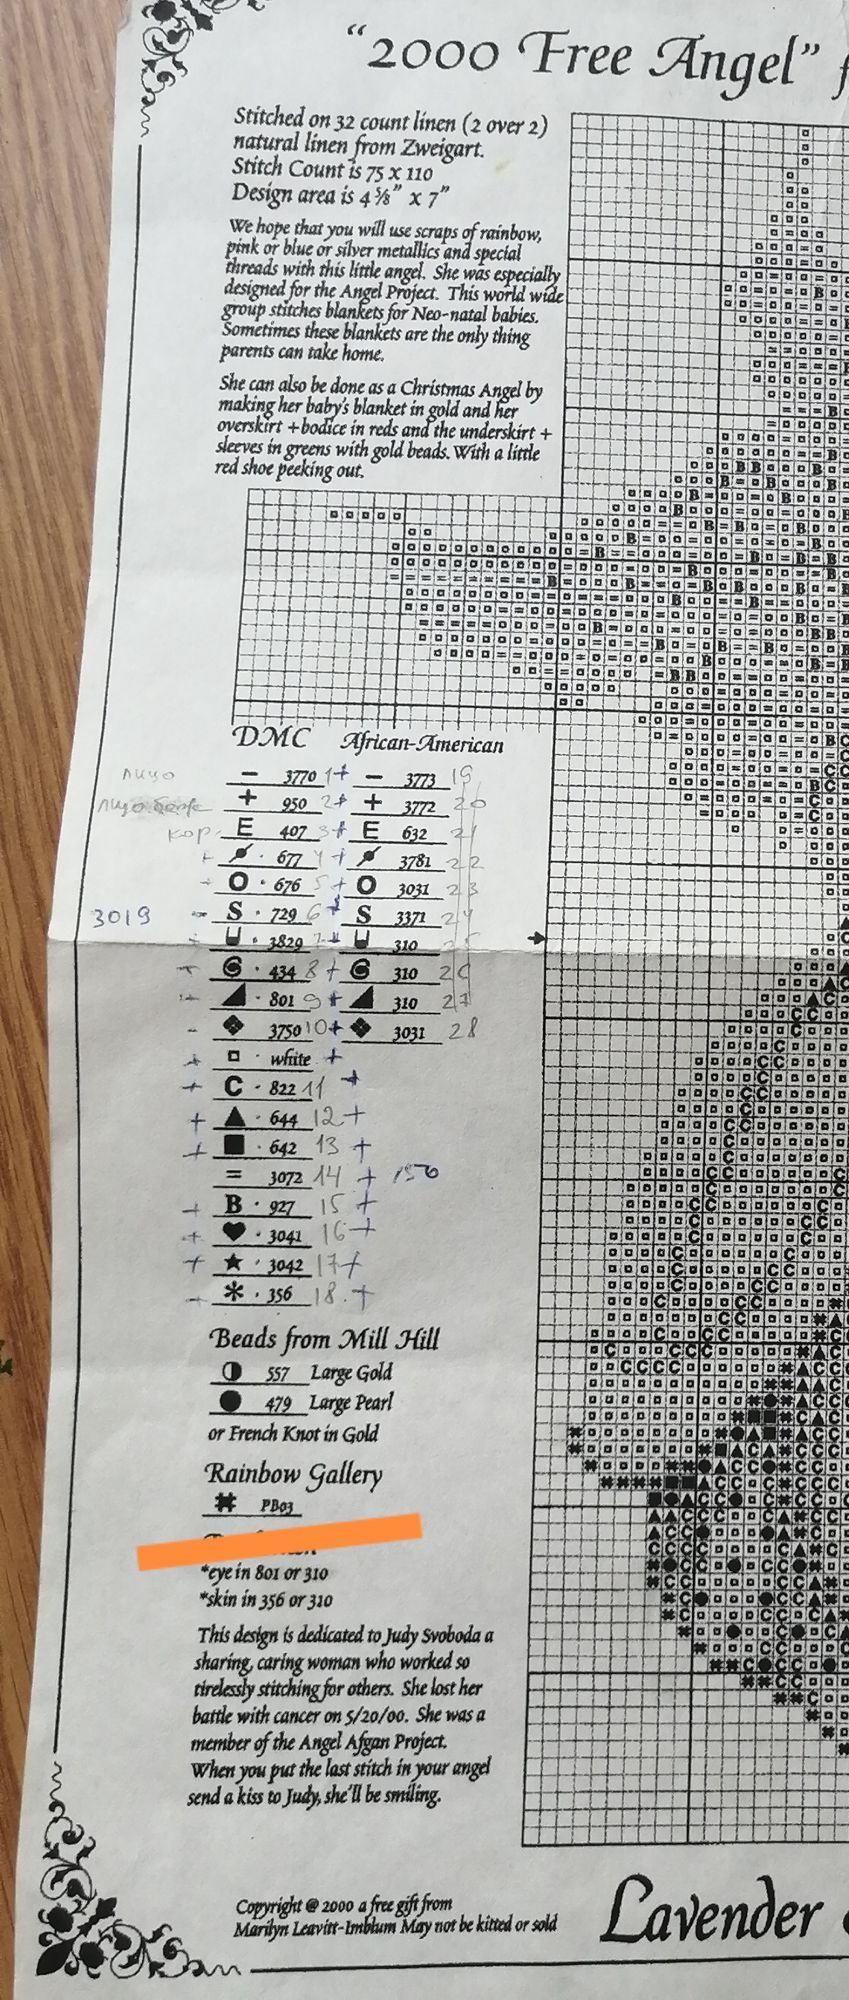 "2000 Free Angel" f
Stitched on 32 count linen (2 over 2)
natural linen from Zweigart.
Stitch Count is 75 x 110
Design area is 4 5/8" x 7"
We hope that you will use scraps of rainbow,
pink or blue or silver metallics and special
threads with this little angel. She was especially
designed for the Angel Project. This world wide
group stitches blankets for Neo-natal babies.
Sometimes these blankets are the only thing
parents can take home.
She can also be done as a Christmas Angel by
making her baby's blanket in gold and her
overskirt + bodice in reds and the underskirt +
sleeves in greens with gold beads. With a little
red shoe peeking out.
DMC African-American
лицо − 3770 1+ − 3773 19
лицо + 950 2+ + 3772 20
кор. E 407 3+ E 632 21
+ · 677 4+ 3781 22
+ O · 676 5+ O 3031 23
3019 - S · 729 6+ S 3371 24
+ 3829 7+ 310 25
+ · 434 8+ 310 26
+ ◢ · 801 9+ ◢ 310 27
- 3750 10+ 3031 28
+ ▫ · white +
+ C · 822 11 +
+ ▲ · 644 12+
+ ■ · 642 13 +
= 3072 14 + 150
+ B · 927 15+
+ ♥ · 3041 16+
+ ★ · 3042 17+
- * · 356 18.+
Beads from Mill Hill
◑ 557 Large Gold
● 479 Large Pearl
or French Knot in Gold
Rainbow Gallery
⌗ PB03
*eye in 801 or 310
*skin in 356 or 310
This design is dedicated to Judy Svoboda a
sharing, caring woman who worked so
tirelessly stitching for others. She lost her
battle with cancer on 5/20/00. She was a
member of the Angel Afgan Project.
When you put the last stitch in your angel
send a kiss to Judy, she'll be smiling.
Copyright @ 2000 a free gift from
Marilyn Leavitt-Imblum May not be kitted or sold
Lavender